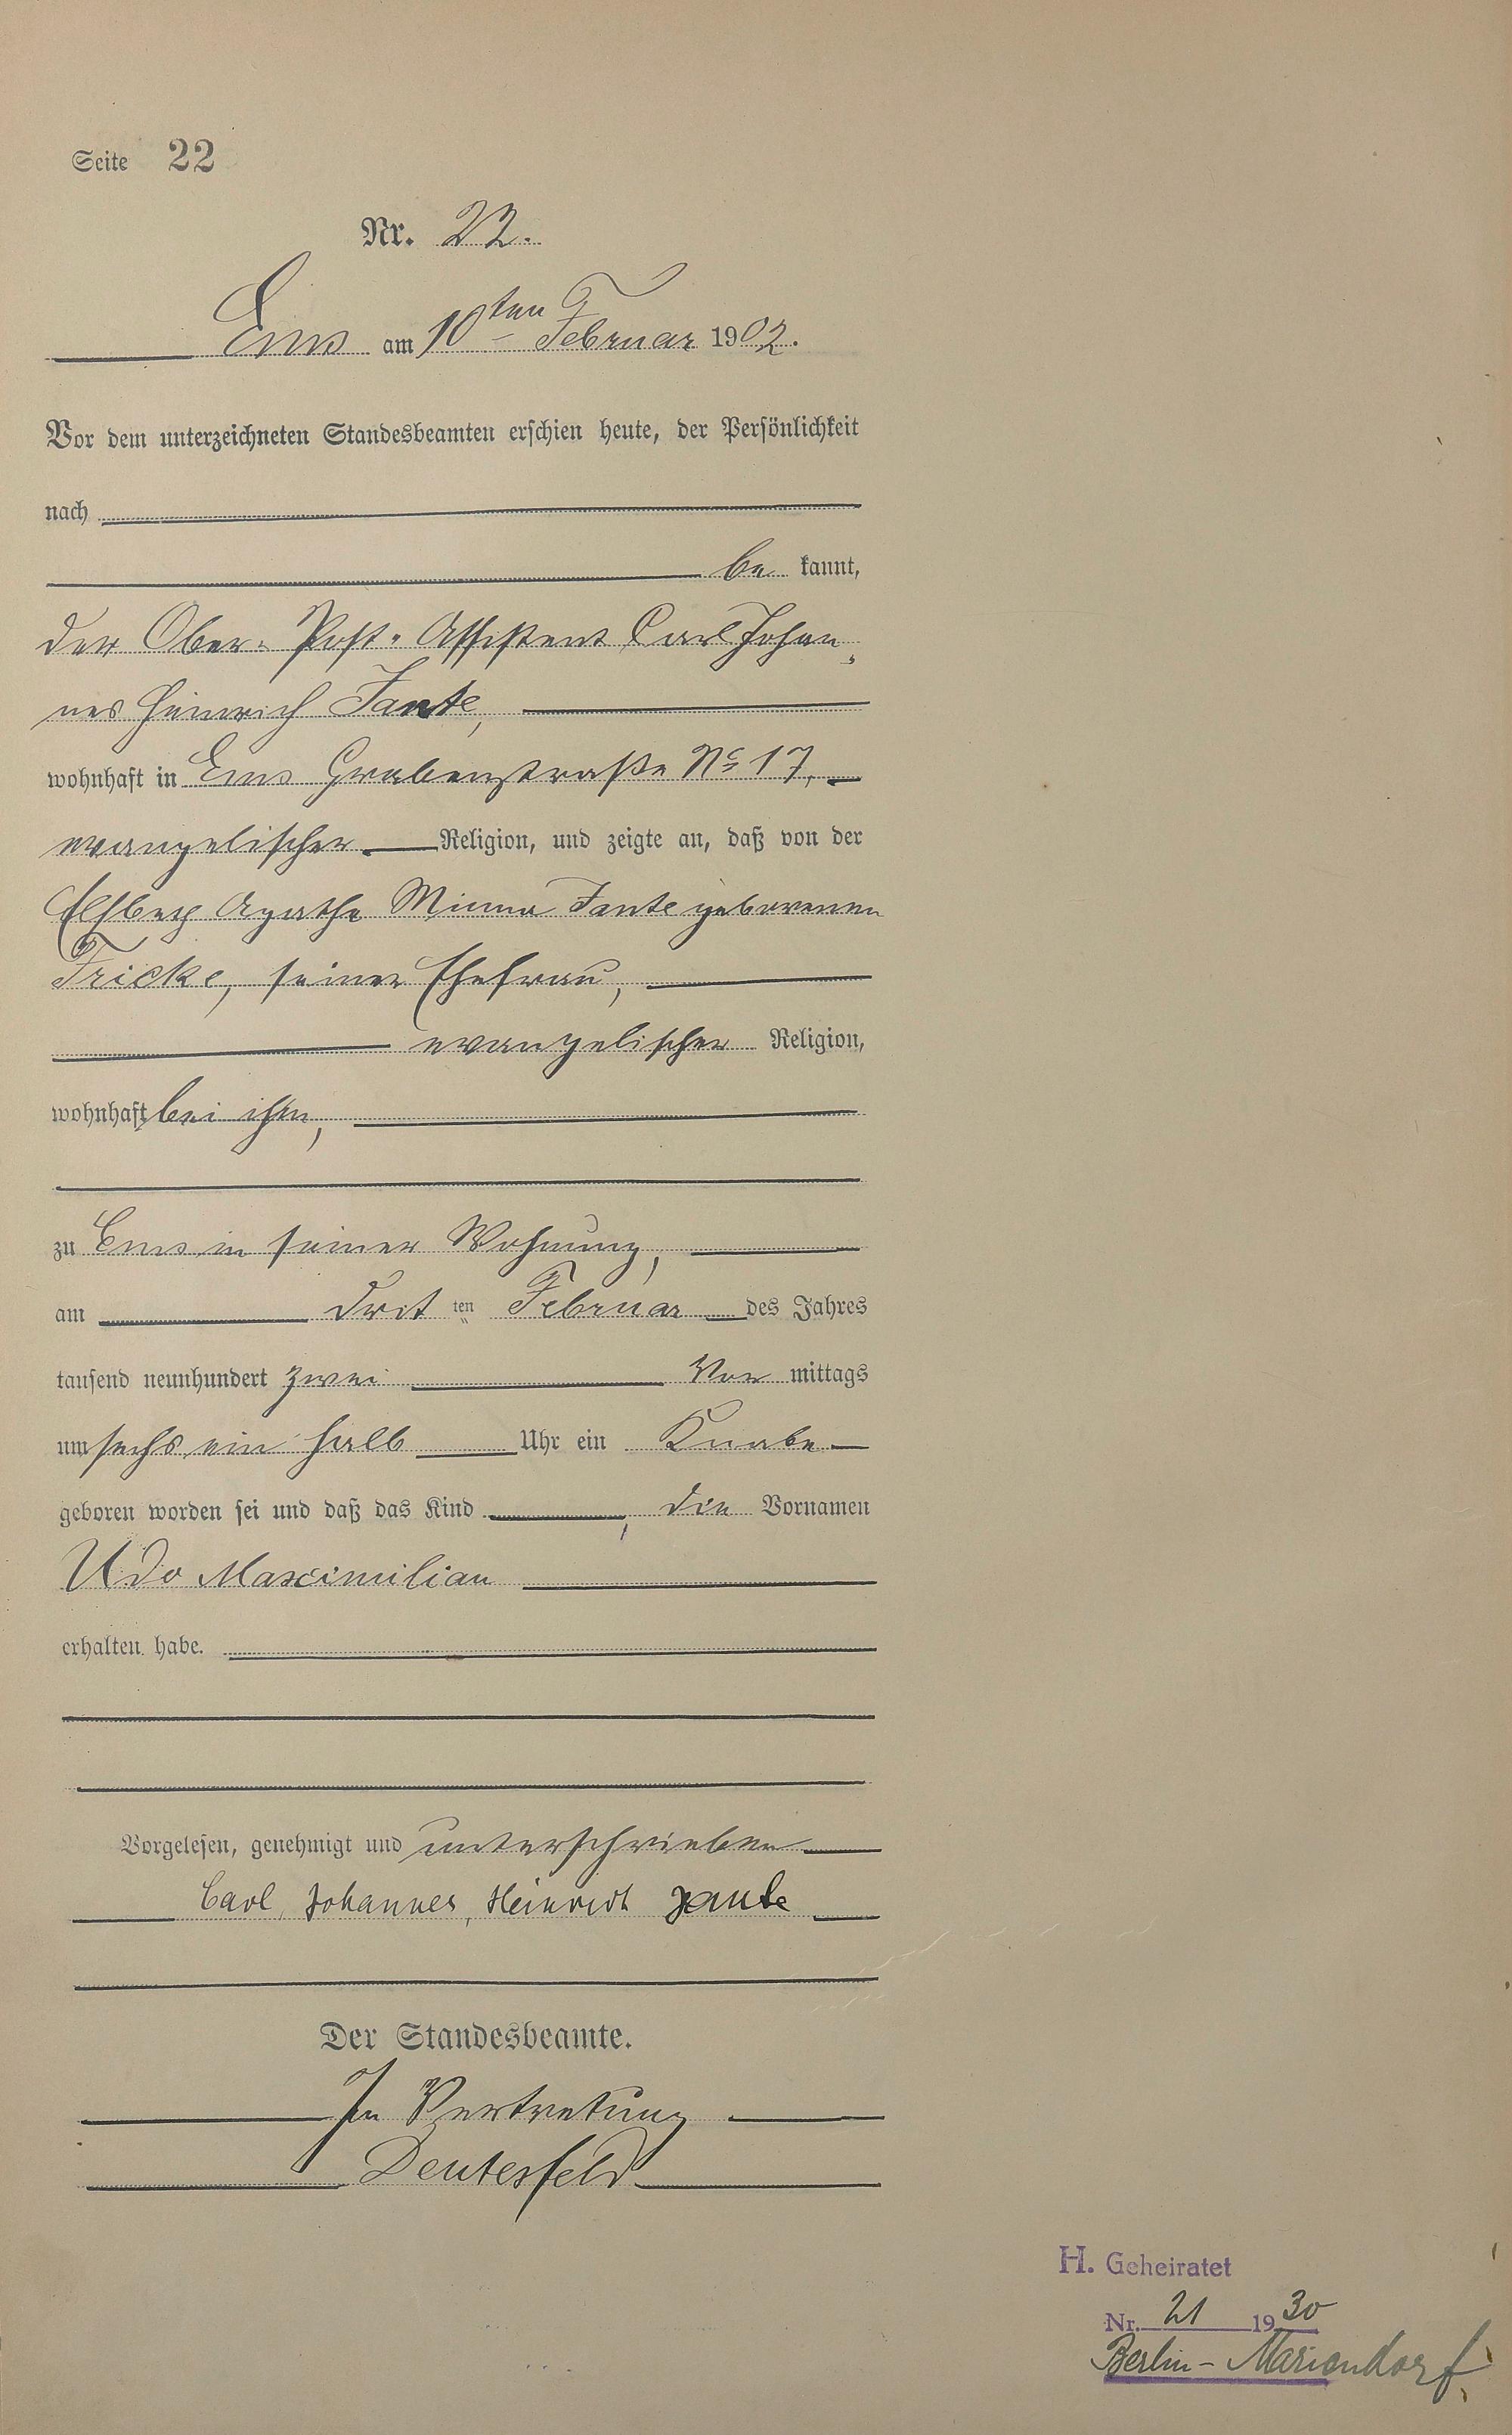 Seite 22
Nr. 22.
Ems am 10ten Februar 1902.
Vor dem unterzeichneten Standesbeamten erschien heute, der Persönlichkeit
nach
be kannt,
der Ober-Post-Assistent Carl Johan-
nes Heinrich Jante,
wohnhaft in Ems Grabenstraße No 17,
evangelischer Religion, und zeigte an, daß von der
Elsbeth Agathe Minna Jante geborenen
Fricke, seiner Ehefrau,
evangelischer Religion,
wohnhaft bei ihm,
zu Ems in seiner Wohnung,
am drit ten Februar des Jahres
tausend neunhundert zwei Vor mittags
um sechs ein halb Uhr ein Knabe
geboren worden sei und daß das Kind, die Vornamen
Udo Maximilian
erhalten habe.
Vorgelesen, genehmigt und unterschrieben
Carl, Johannes, Heinrich Jante
Der Standesbeamte.
In Vertretung
Deutesfeld
H. Geheiratet
Nr. 21 1930
Berlin-Mariendorf